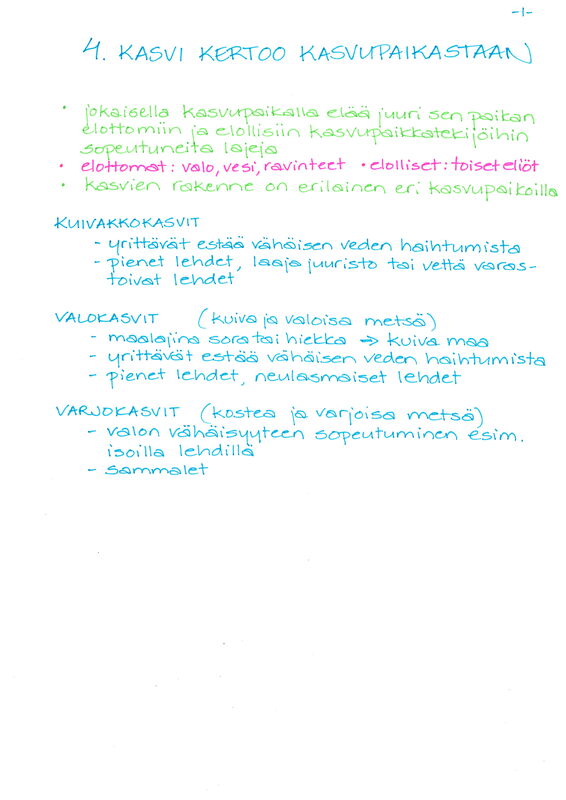 -1-
4. KASVI KERTOO KASVUPAIKASTAAN
• jokaisella kasvupaikalla elää juuri sen paikan
elottomiin ja elollisiin kasvupaikkatekijöihin
sopeutuneita lajeja
• elottomat: valo, vesi, ravinteet • elolliset: toiset eliöt
• kasvien rakenne on erilainen eri kasvupaikoilla
KUIVAKKOKASVIT
- yrittävät estää vähäisen veden haihtumista
- pienet lehdet, laaja juuristo tai vettä varas-
toivat lehdet
VALOKASVIT (kuiva ja valoisa metsä)
- maalajina sora tai hiekka → kuiva maa
- yrittävät estää vähäisen veden haihtumista
- pienet lehdet, neulasmaiset lehdet
VARJOKASVIT (kostea ja varjoisa metsä)
- valon vähäisyyteen sopeutuminen esim.
isoilla lehdillä
- sammalet